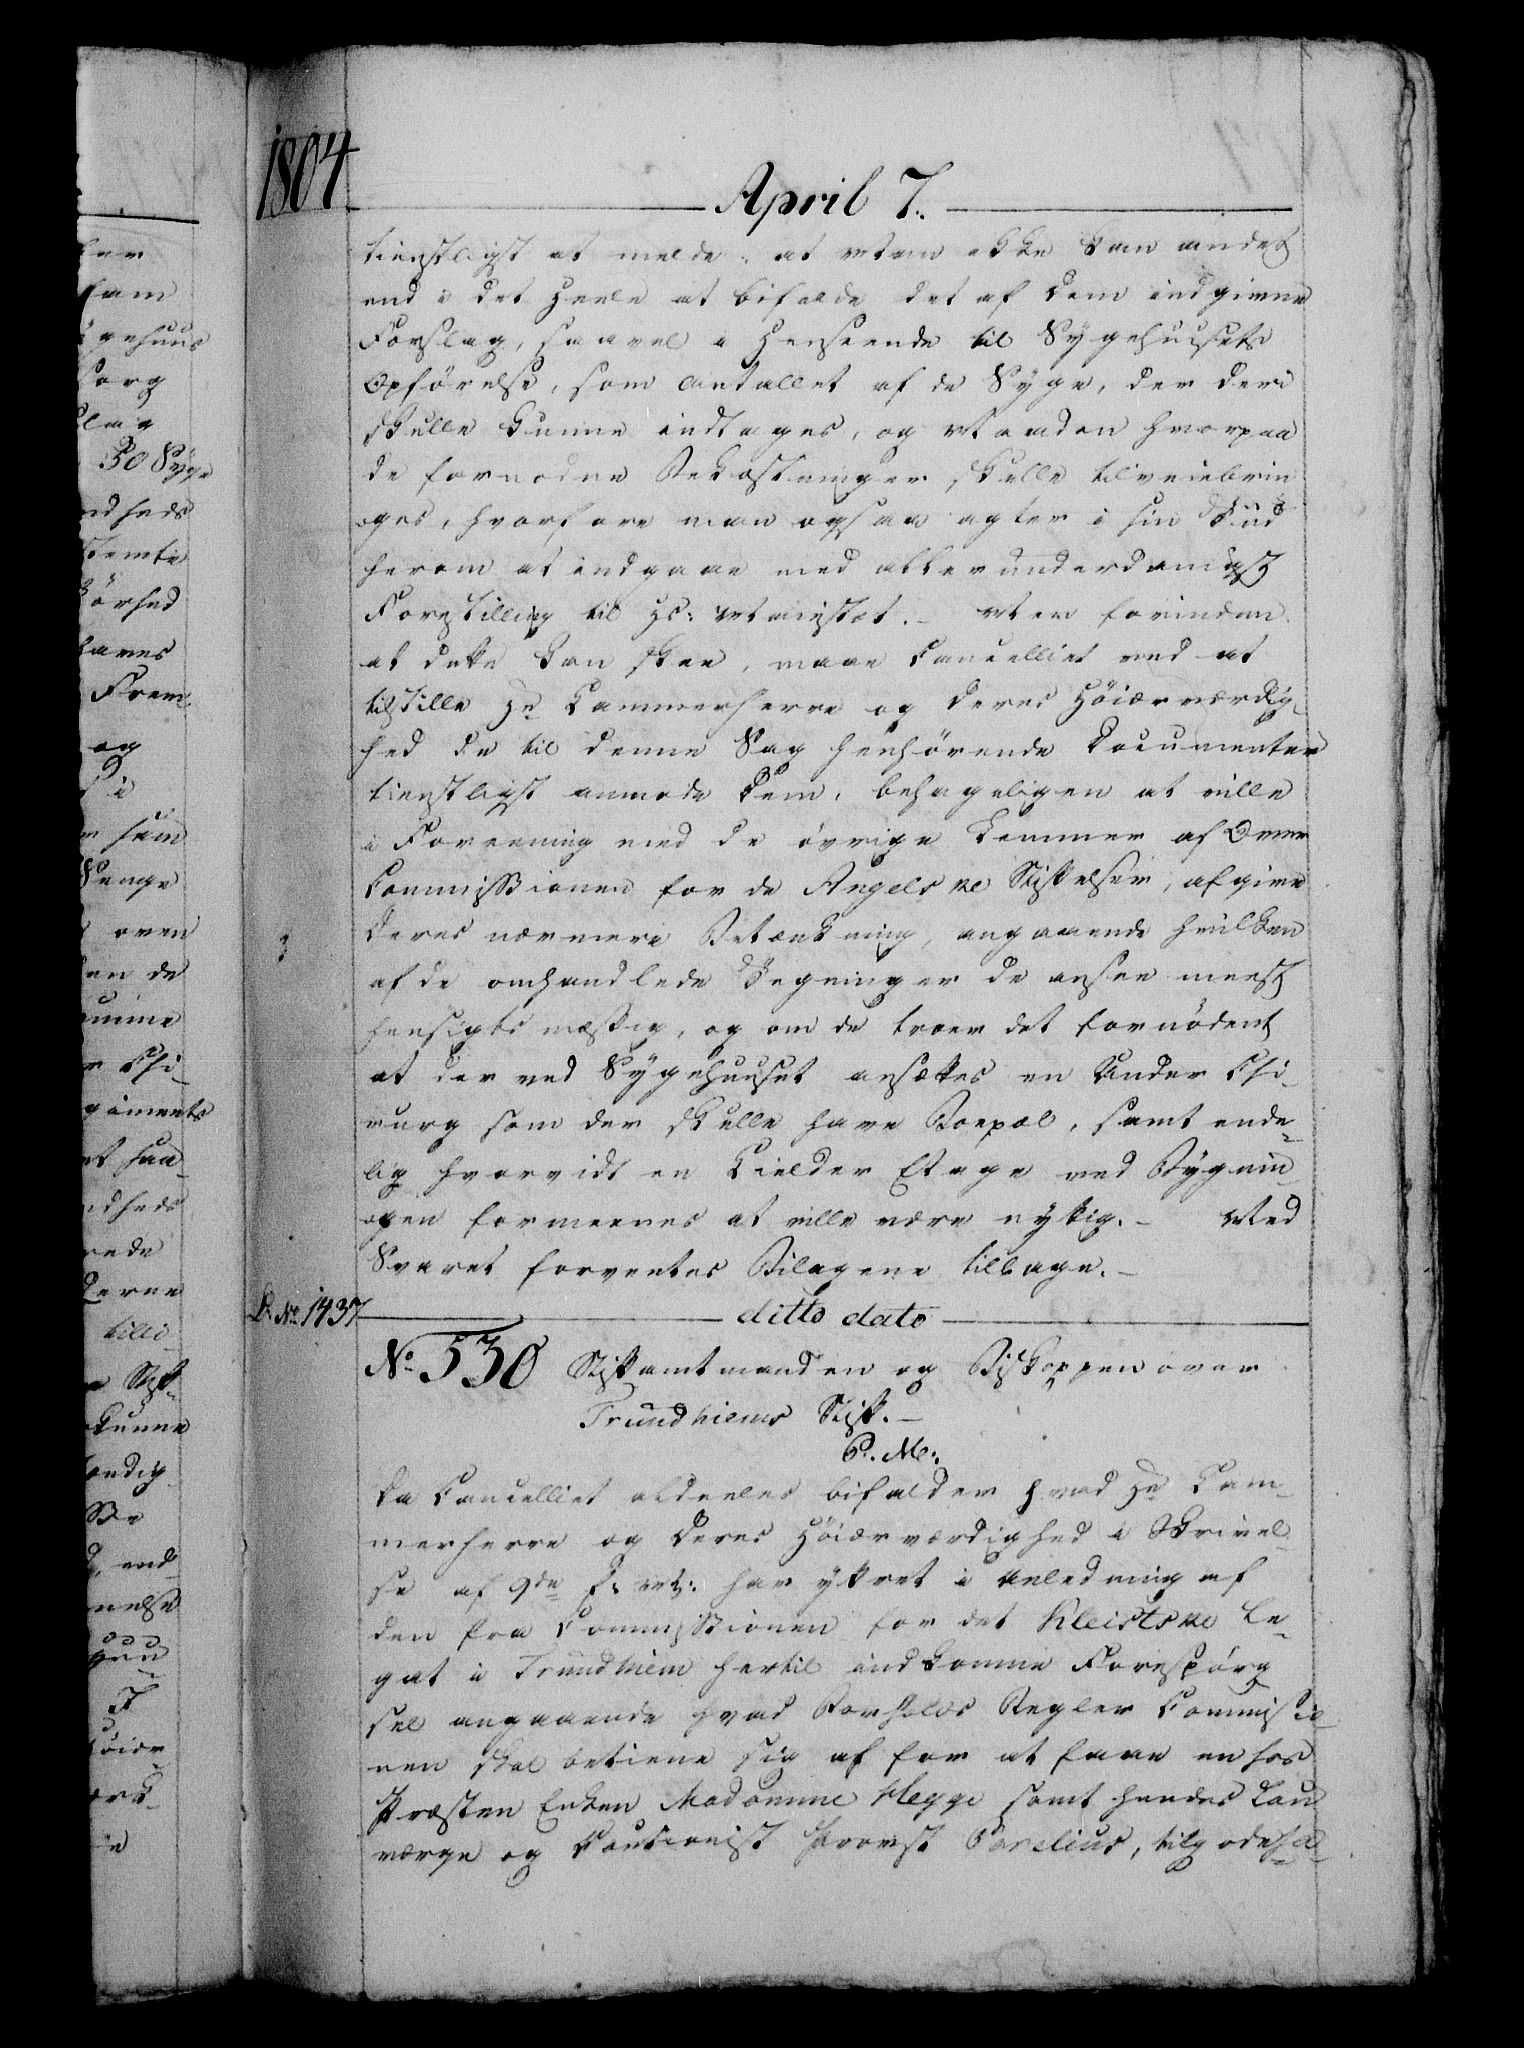 1804
April 7.
tienstligst at melde: at man ikke kan andet
end i det Heele at bifalde det af Dem indgivne
Forslag, saavel i Henseende til Sygehuusets
Opförelse, som Antallet af de Syge, der deri
skulle kunne indtages, og Maaden hvorpaa
de fornødne Bekostninger skulle tilveiebrin
ges, hvorfore man ogsaa agter i sin Tiid
herom at indgaae med allerunderdanigst
Forestilling til Hs: Majestæt. – Men forinden
at dette kan skee, maae Cancelliet ved at
tilstille Hr Kammerherre og Deres Höiærværdig-
hed de til denne Sag henhörende Documenter
tienstligst anmode Dem, behageligen at ville
i Foreening med de övrige Lemmer af Over
Commissionen for de Angelske Stiftelser, afgive
Deres nærmere Betænkning, angaaende hvilken
af de omhandlede Tegninger de ansee meest
hensigtsmæssig, og om de troer det fornödent
at der ved Sygehuuset ansættes en Under Chi-
rurg som der skulle have Boepæl, samt ende-
lig hvorvidt en Kielder Etage ved Bygnin-
gen formeenes at ville være nyttig. – Med
Svaret forventes Bilagene tilbage. –
L. No. 1437
ditto dato
No. 530 Stiftamtmanden og Biskoppen over
Trundhiems Stift. –
P. M:
Da Cancelliet aldeeles bifalder hvad Hr Kam-
merherre og Deres Höiærværdighed i Skrivel-
se af 9de f: M: har yttret i Anledning af
den fra Commissionen for det Kleistske Le-
gat i Trundhiem hertil indkomne Forespörg
sel angaaende hvad Forholds Regler Commissio-
nen skal betiene sig af for at faae en hos
Præsten Enken Madamme Hegge samt hendes Lau
værge og Cautionist Provst Parelius, tilgodeha-